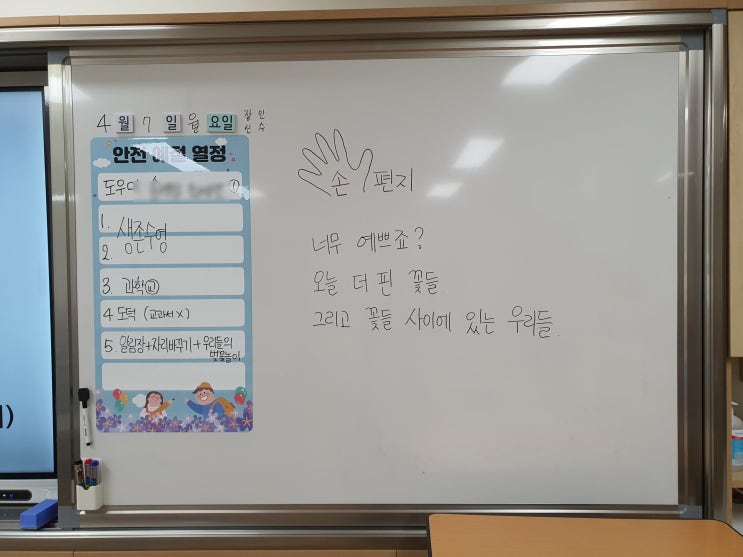 4 월 7 일 월 요일
안전 예절 열정
도우미
1.
생존수영
2.
3. 과학 교
4 도덕 (교과서 X)
5. 알림장+자리바꾸기+우리들의
벚꽃놀이
손 편지
너무 예쁘죠?
오늘 더 핀 꽃들.
그리고 꽃들 사이에 있는 우리들.